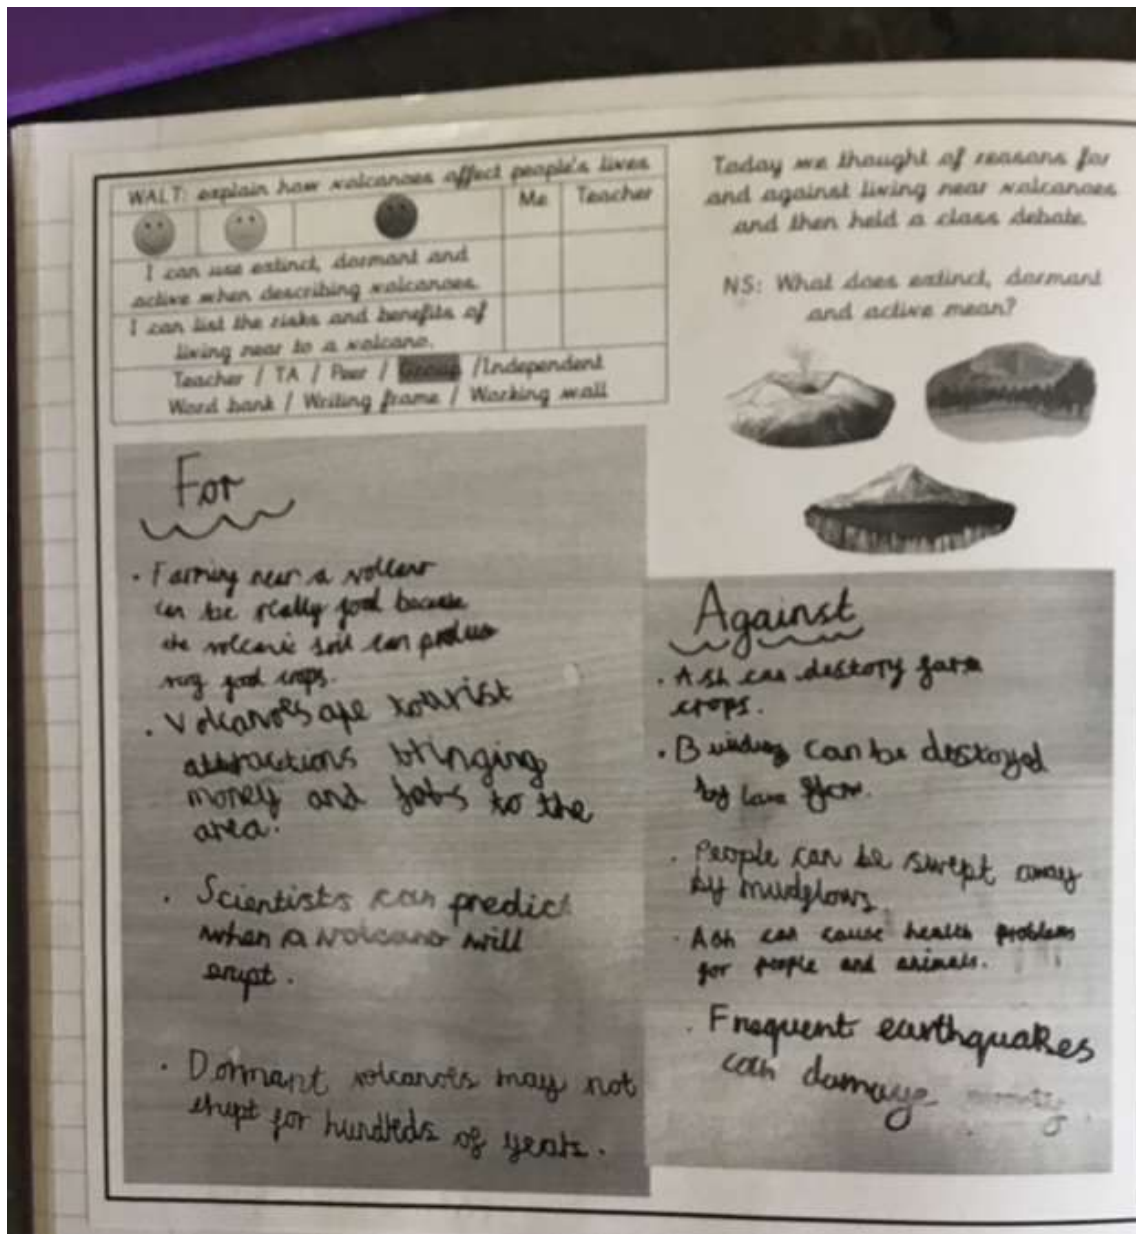 WALT: explain how volcanoes affect people's lives
Me
Teacher
I can use extinct, dormant and
active when describing volcanoes.
I can list the risks and benefits of
living near to a volcano.
Teacher / TA / Peer / Group /Independent
Word bank / Writing frame / Working wall
Today we thought of reasons for
and against living near volcanoes
and then held a class debate.
NS: What does extinct, dormant
and active mean?
For
• Farming near a volcano
can be really good because
the volcanic soil can produce
very good crops.
• Volcanoes are tourist
attractions bringing
money and jobs to the
area.
• Scientists can predict
when a volcano will
erupt.
• Dormant volcanoes may not
erupt for hundreds of years.
Against
• Ash can destory farm
crops.
• Buildings can be destoyed
by lava flow.
• People can be swept away
by mudflows.
• Ash can cause health problems
for people and animals.
• Frequent earthquakes
can damage